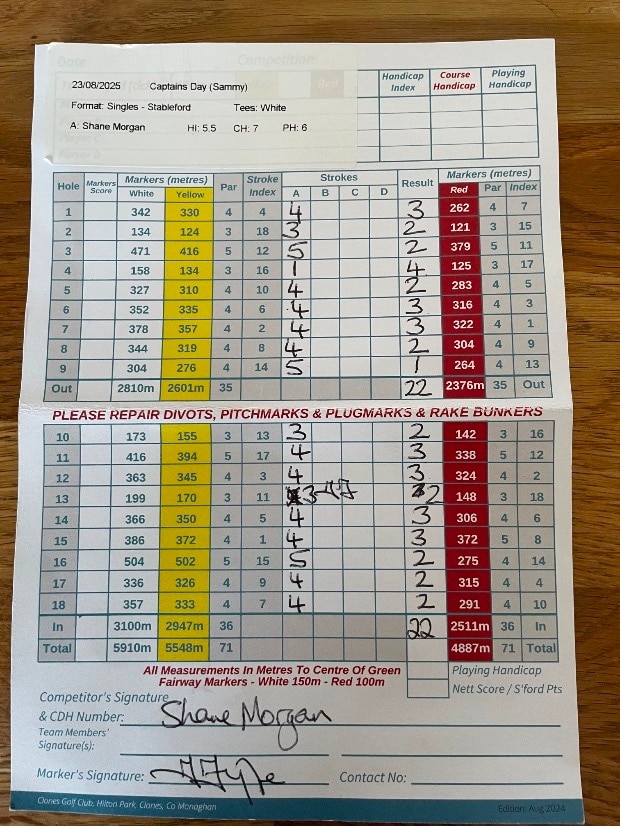 Date Competition
23/08/2025 Captains Day (Sammy)
Format: Singles - Stableford Tees: White
A: Shane Morgan HI: 5.5 CH: 7 PH: 6
Handicap Index Course Handicap Playing Handicap
Hole Markers Score Markers (metres) Par Stroke Index Strokes Result Markers (metres)
White Yellow A B C D Red Par Index
1 342 330 4 4 4 3 262 4 7
2 134 124 3 18 3 2 121 3 15
3 471 416 5 12 5 2 379 5 11
4 158 134 3 16 1 4 125 3 17
5 327 310 4 10 4 2 283 4 5
6 352 335 4 6 4 3 316 4 3
7 378 357 4 2 4 3 322 4 1
8 344 319 4 8 4 2 304 4 9
9 304 276 4 14 5 1 264 4 13
Out 2810m 2601m 35 22 2376m 35 Out
PLEASE REPAIR DIVOTS, PITCHMARKS & PLUGMARKS & RAKE BUNKERS
10 173 155 3 13 3 2 142 3 16
11 416 394 5 17 4 3 338 5 12
12 363 345 4 3 4 3 324 4 2
13 199 170 3 11 3 2 148 3 18
14 366 350 4 5 4 3 306 4 6
15 386 372 4 1 4 3 372 5 8
16 504 502 5 15 5 2 275 4 14
17 336 326 4 9 4 2 315 4 4
18 357 333 4 7 4 2 291 4 10
In 3100m 2947m 36 22 2511m 36 In
Total 5910m 5548m 71 4887m 71 Total
All Measurements In Metres To Centre Of Green
Fairway Markers - White 150m - Red 100m
Playing Handicap
Nett Score / S'ford Pts
Competitor's Signature
& CDH Number: Shane Morgan
Team Members'
Signature(s):
Marker's Signature: Contact No:
Clones Golf Club, Hilton Park, Clones, Co Monaghan Edition: Aug 2024